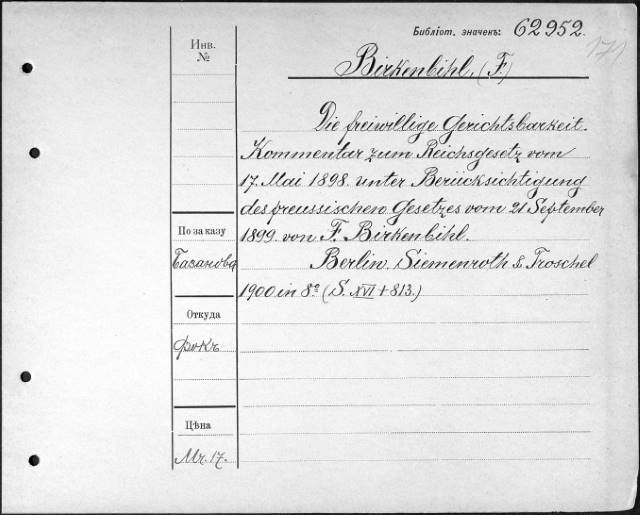 Библіот. значекъ: 62952.
171
Инв.
№
Birkenbihl. (F.)
Die freiwillige Gerichtsbarkeit.
Kommentar zum Reichsgesetz vom
17. Mai 1898. unter Berücksichtigung
des preussischen Gesetzes vom 21 September
1899. von F. Birkenbihl.
Berlin. Siemenroth & Troschel
1900 in 8º (S. XVI + 813.)
По заказу
Базанова
Откуда
Фокъ
Цѣна
Mr. 17.